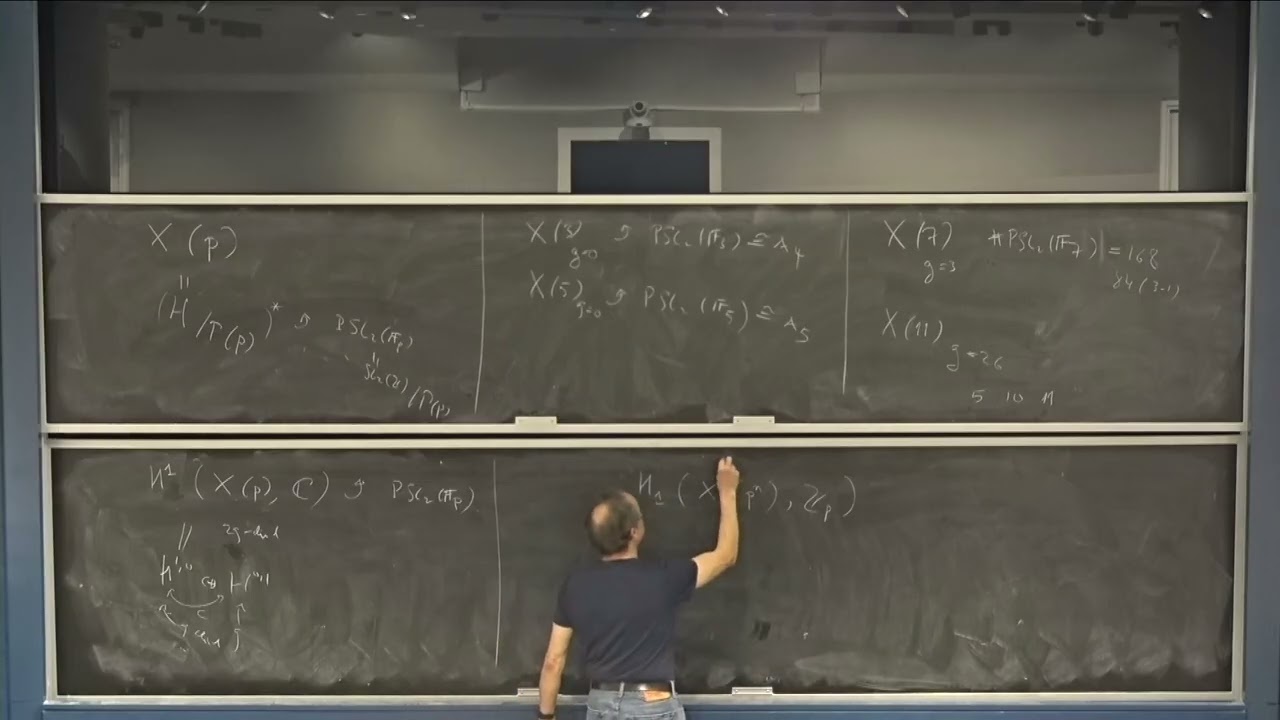 X(p)
||
(H/Γ(p))* ↺ PSL₂(𝔽p)
||
SL₂(ℤ)/Γ(p)
X(3) ↺ PSL₂(𝔽₃) ≅ A₄
g=0
X(5) ↺ PSL₂(𝔽₅) ≅ A₅
g=0
X(7) #PSL₂(𝔽₇)| = 168
g=3 84(3-1)
X(11)
g=26
5 10 11
H¹(X(p), ℂ) ↺ PSL₂(𝔽p).
|| 2g-dim'l
H¹,⁰ ⊕ H⁰,¹
c
H₁(X pⁿ), ℤp)